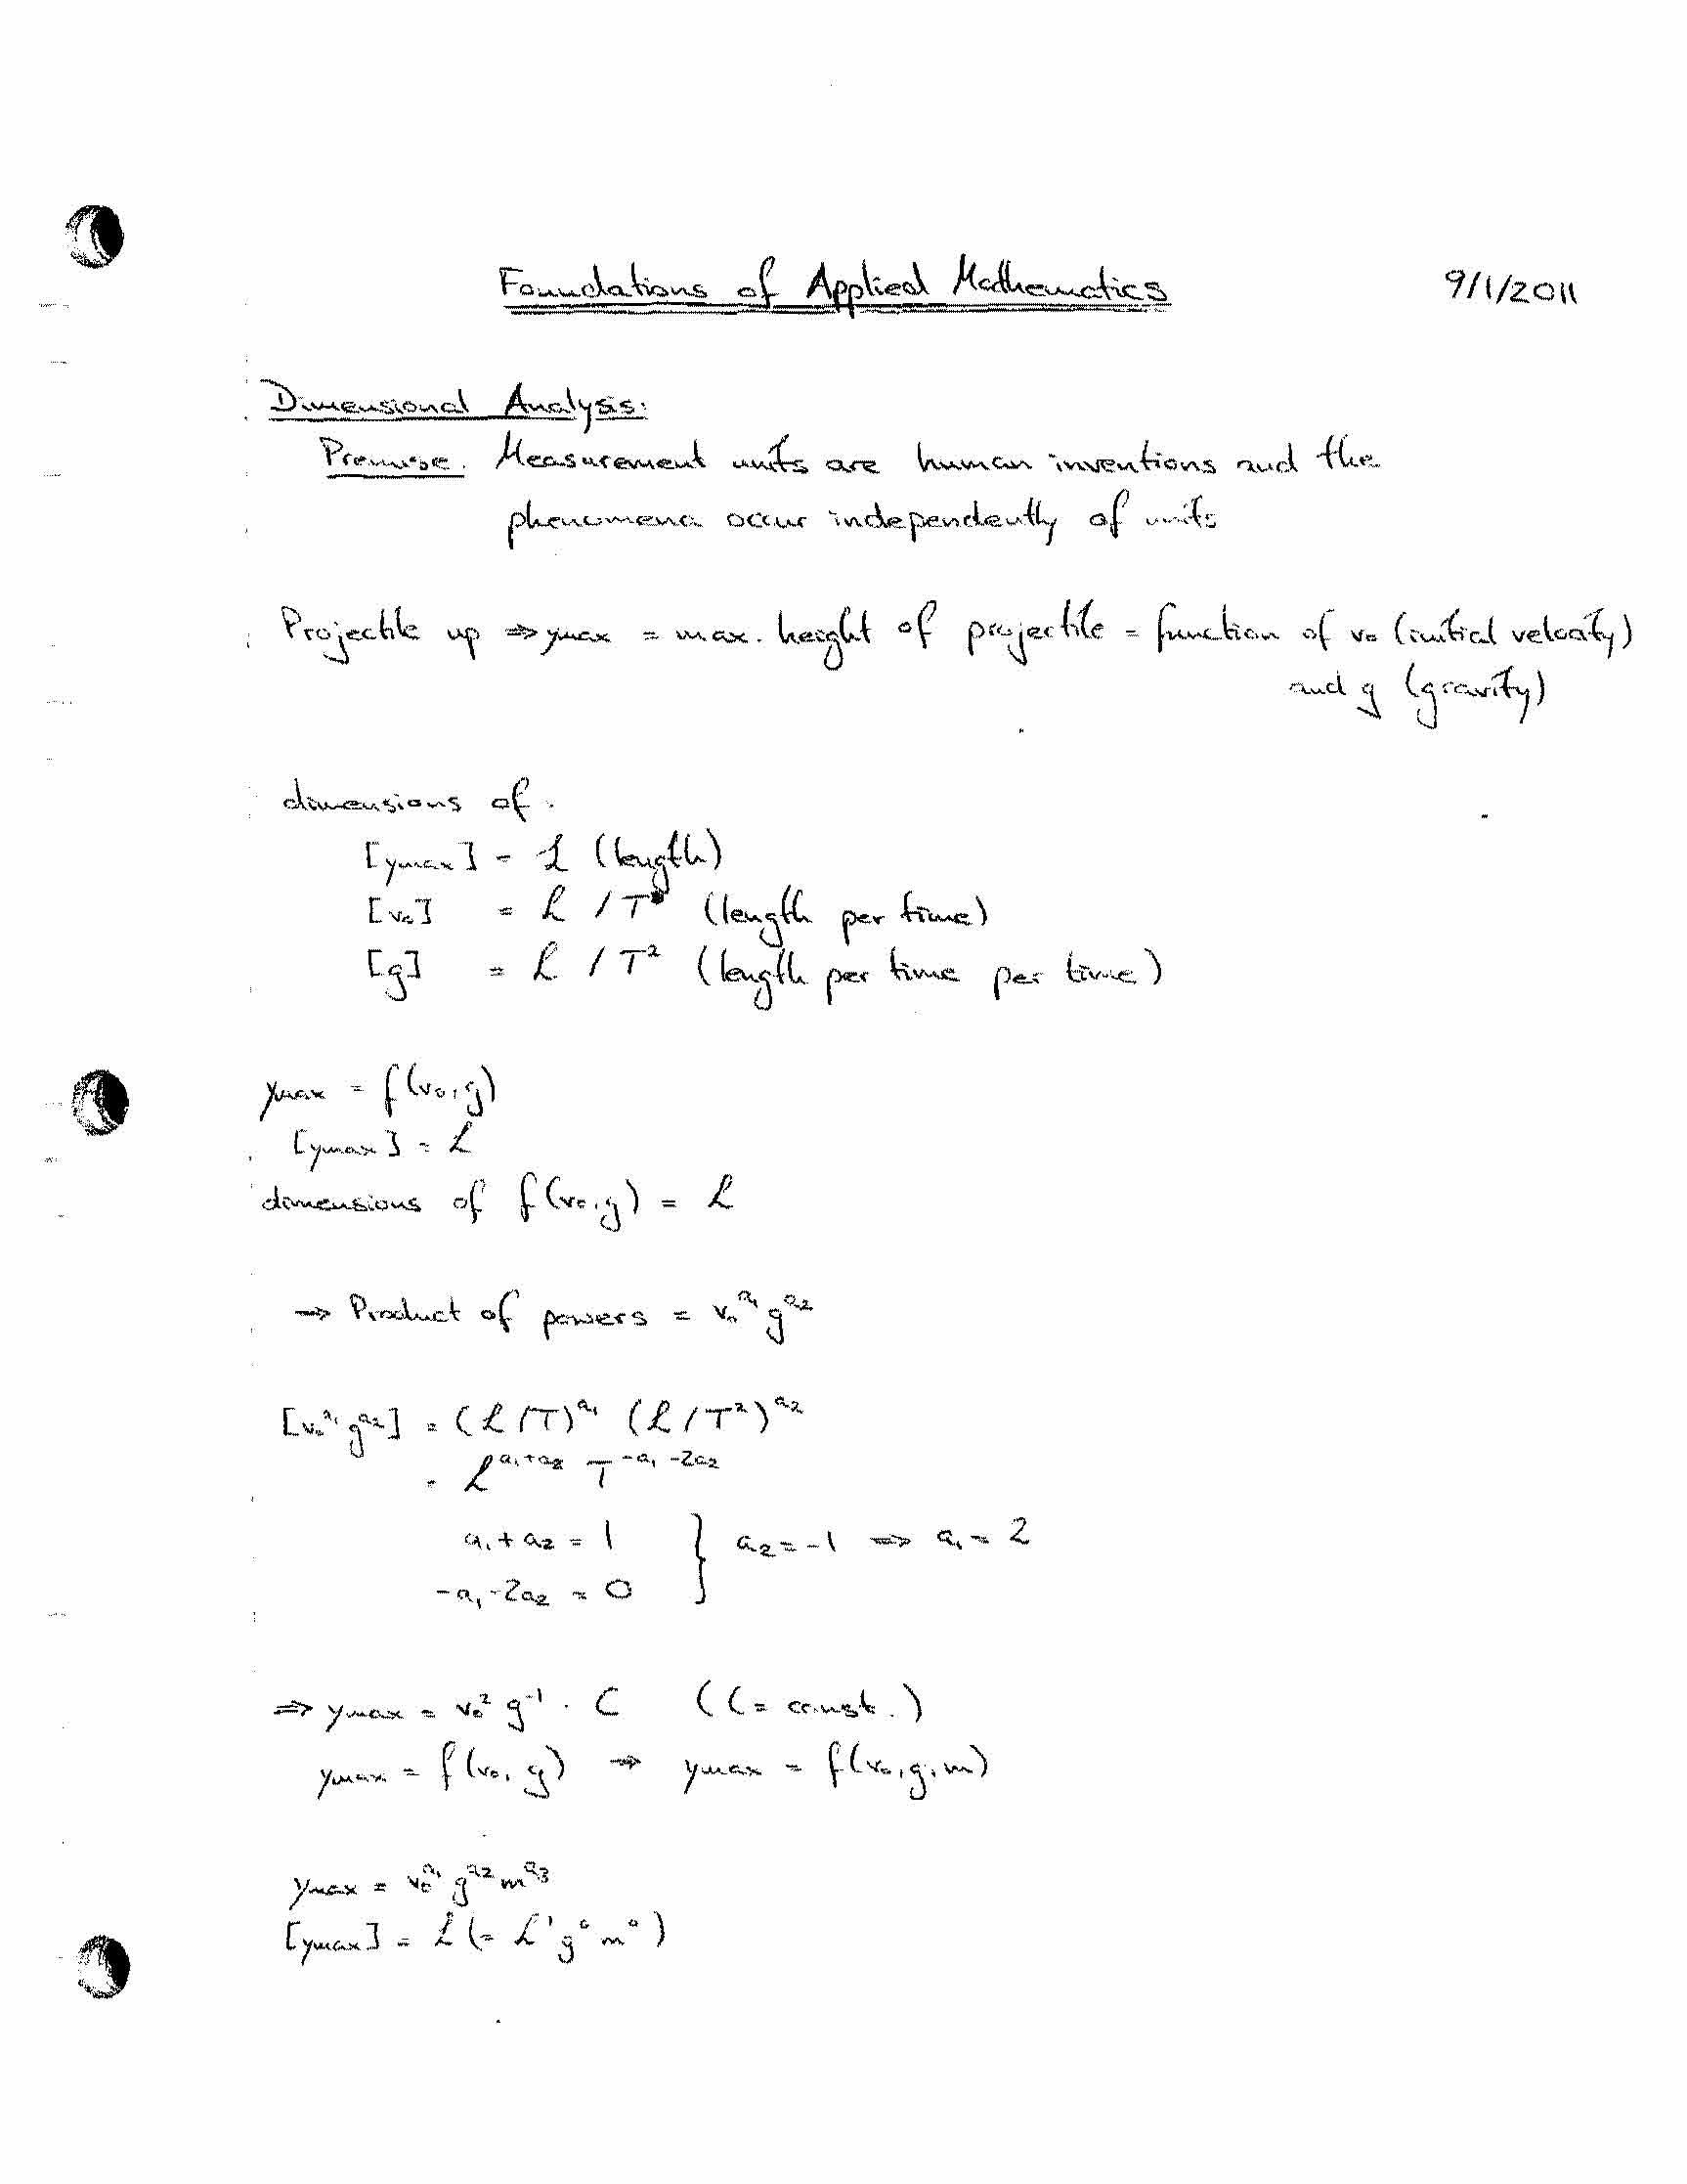 Foundations of Applied Mathematics 9/1/2011
Dimensional Analysis:
Premise. Measurement units are human inventions and the
phenomena occur independently of units
Projectile up ⇒ ymax = max. height of projectile = function of v₀ (initial velocity)
and g (gravity)
dimensions of:
[ymax] = L (length)
[v₀] = L / T (length per time)
[g] = L / T² (length per time per time)
ymax = f(v₀, g)
[ymax] = L
dimensions of f(v₀, g) = L
→ Product of powers = v₀^a₁ g^a₂
[v₀^a₁ g^a₂] = (L/T)^a₁ (L/T²)^a₂
= L^(a₁+a₂) T^(-a₁-2a₂)
a₁ + a₂ = 1 } a₂ = -1 ⇒ a₁ = 2
-a₁ - 2a₂ = 0
⇒ ymax = v₀² g⁻¹ · C (C = const.)
ymax = f(v₀, g) → ymax = f(v₀, g, m)
ymax = v₀^a₁ g^a₂ m^a₃
[ymax] = L (= L¹ g⁰ m⁰)